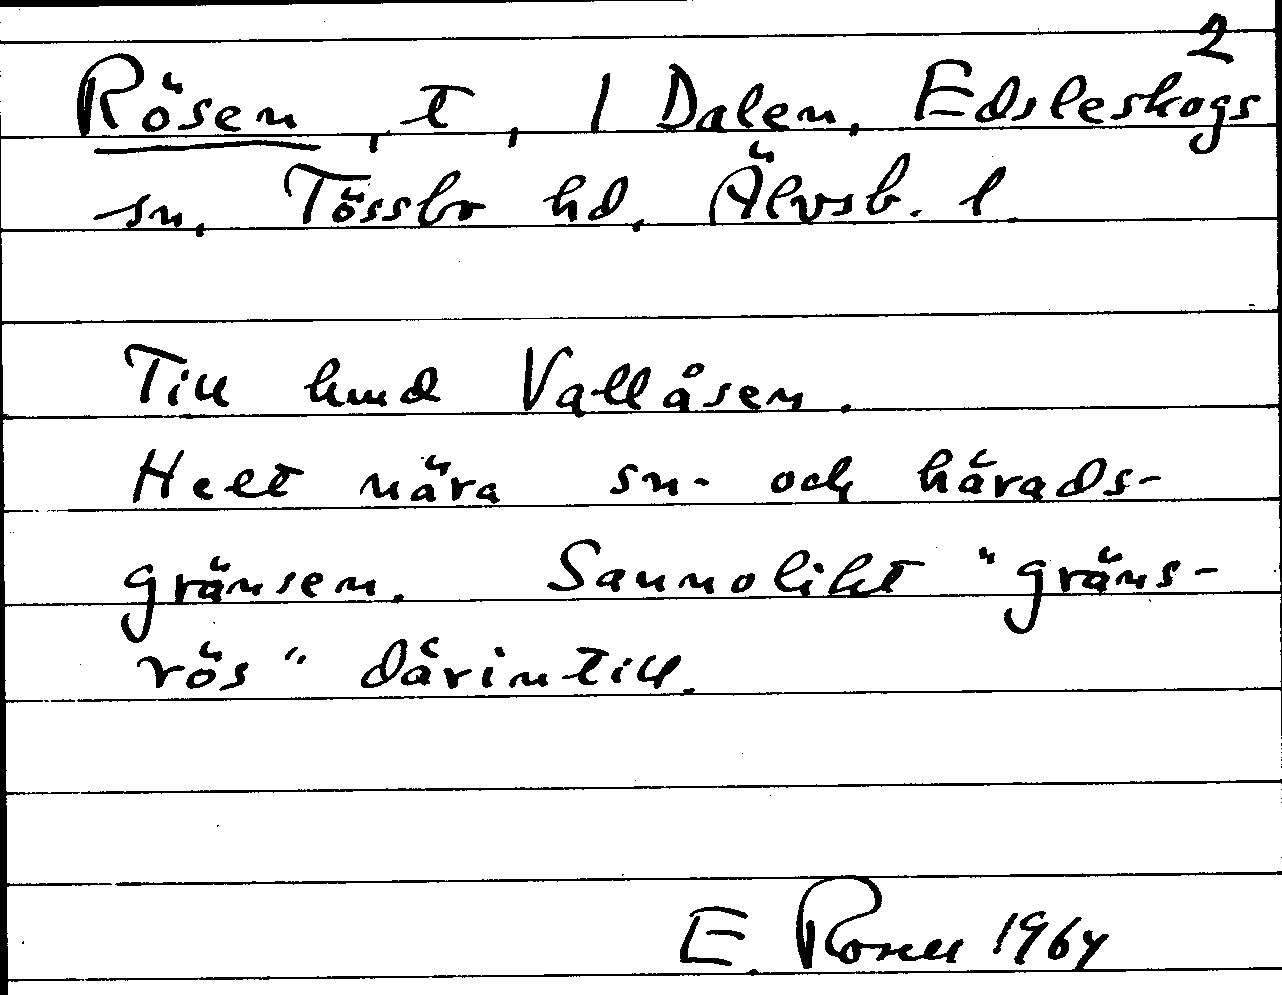 2
Rösen, t, 1 Dalen, Edsleskogs
sn, Tössbo hd, Älvsb. l.
Till hmd Vallåsen.
Helt nära sn- och härads-
gränsen. Sannolikt "gräns-
rös" därintill.
E. Rosell 1964